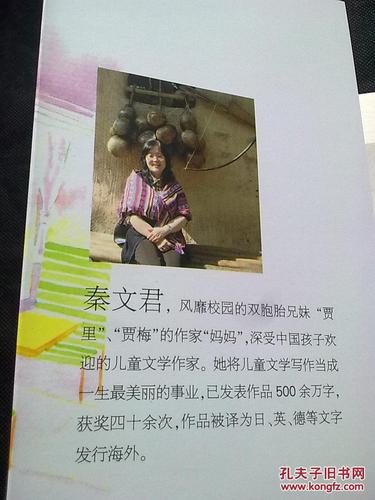 秦文君，风靡校园的双胞胎兄妹“贾
里”、“贾梅”的作家“妈妈”，深受中国孩子欢
迎的儿童文学作家。她将儿童文学写作当成
一生最美丽的事业，已发表作品500余万字，
获奖四十余次，作品被译为日、英、德等文字
发行海外。
孔夫子旧书网
www.kongfz.com